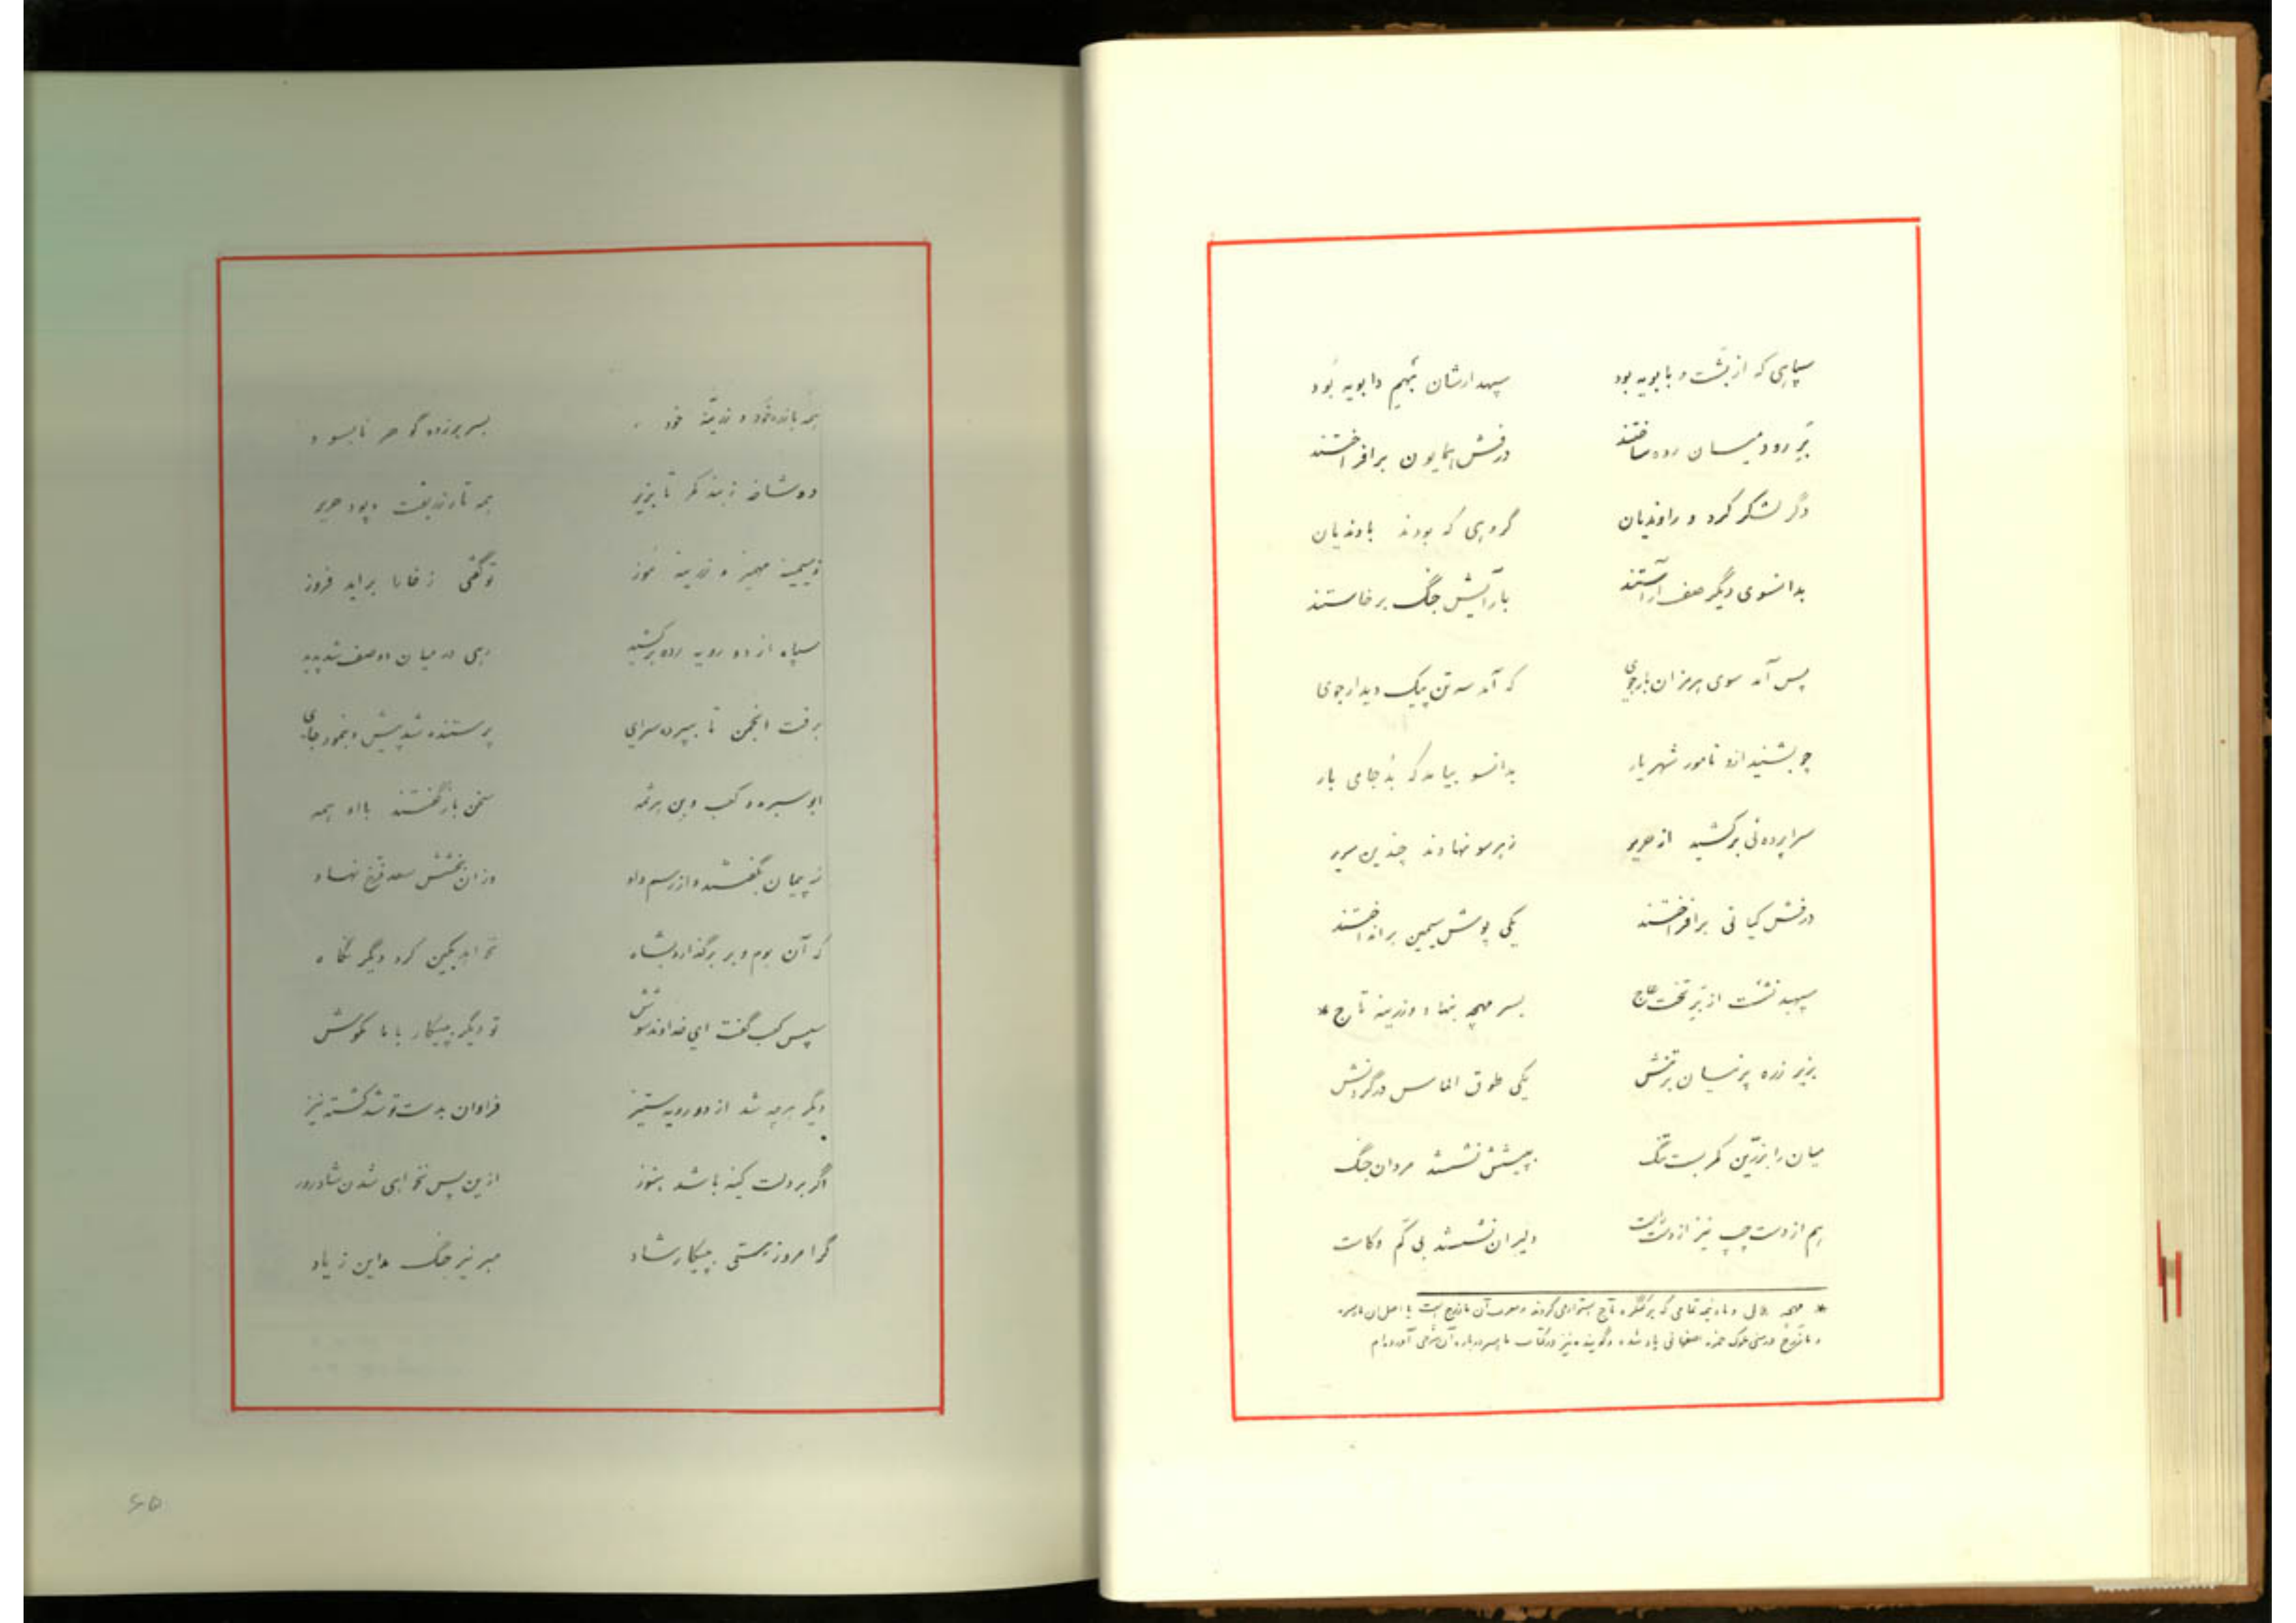 سپاهی که از پشت و بابویه بود سپهدارشان بَهیم دابویه بُود
بَرِ رود میسان رده ساختند درفش همایون برافراختند
دگر لشکر کرد و راوندیان گروهی که بودند باوندیان
بدانسوی دیگر صف آراستند بآرایش جنگ برخاستند
پس آمد سوی هرمزان بارجوی که آمد سه تن پیک دیدارجوی
چو بشنید ازو نامور شهریار بدانسو بیامد که بُد جای بار
سراپرده ئی برکشید از حریر ز هر سو نهادند چندین سریر
درفش کیانی برافراختند یکی پوشش سیمین برانداختند
سپهبد نشست از بَرِ تخت عاج بسر مهچه بنهاد و زرینه تاج *
بزیر زره پرنیان بر تنش یکی طوق الماس در گردنش
میان را بزرّین کمر بست تنگ بپیشش نشستند مردان جنگ
هم از دست چپ نیز از دست راست دلیران نشستند بی کمّ و کاست
* مهچه و ماه نیمه تمامی که بر کنگره تاج استوار می کردند و معرب آن
و در سنی ملوک حمزه اصفهانی یاد شده و گوینده نیز در کتاب درباره آن شرحی آورده ام
همه با زره خُود و زرینه خُود بسر بر زده گوهر نابسود
دو شاخه ز بند کمر تا بزیر همه تار زربفت و پود حریر
ز سیمینه مهمیز و زرینه مُوز تو گفتی ز خارا برآید فروز
سپاه از دو رویه رده برکشید رهی در میان دو صف شد پدید
برفت انجمن تا بپرده سرای پرستنده شد پیش و بنمود جای
ابو سبره و کعب و بن هرثمه سخن بازگفتند با او همه
ز پیمان بگفتند و از رسم داد وزان بخشش سعد فرّخ نهاد
که آن بوم و بر برگذارد بشاه نخواهد بکین کرد دیگر نگاه
سپس کعب گفت ای خداوند شوش تو دیگر بپیکار با ما مکوش
دگر هر چه شد از دو رویه ستیز فراوان بدست تو شد کشته نیز
اگر بر دلت کینه باشد هنوز ازین پس نخواهی شدن شادروز
گر امروز هستی بپیکار شاد مبر نیز جنگ مداین ز یاد
۶۵